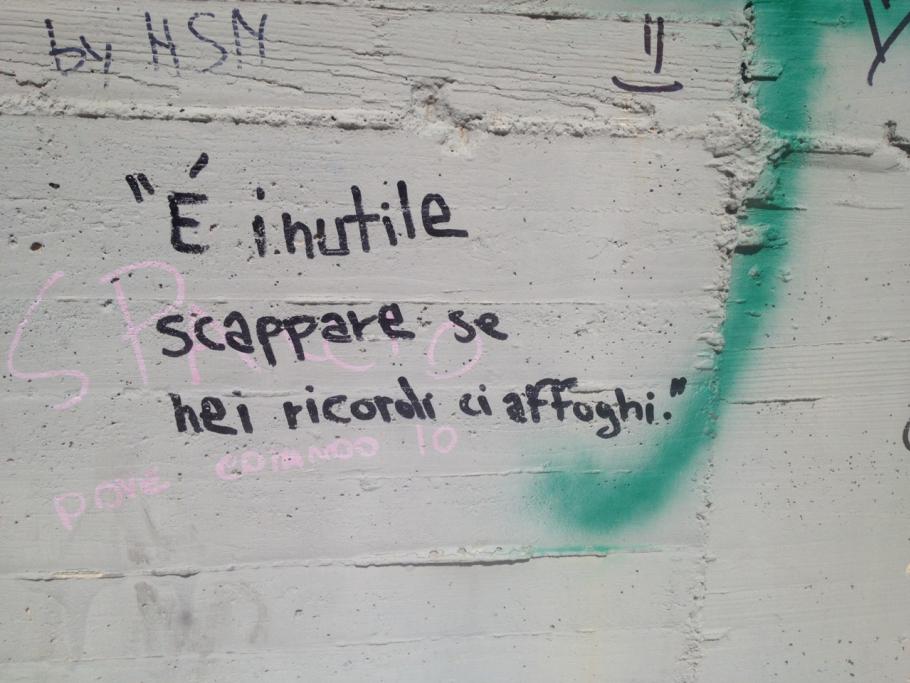 by MSM
"É inutile
scappare se
nei ricordi ci affoghi."
DOVE COMANDO IO